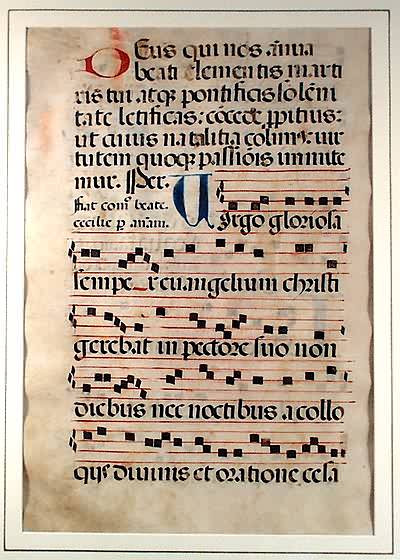 Deus qui nos añua
beati clementis marti
ris tui atq; pontificis solēni
tate letificas: cōcede ꝓpitius:
ut cuius natalitia colimꝰ: uir
tutem quoq; passiōis imite
mur. Per.
fiat com̄ beate.
cecilie ꝑ añam.
Uirgo gloriosa
semper euangelium christi
gerebat in pectore suo non
diebus nec noctibus a collo
quijs diuinis et oratione cessa